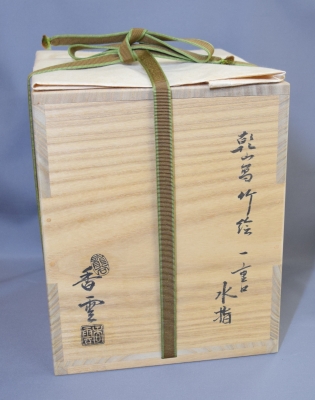 乾山写竹絵 一重口
水指
香雲